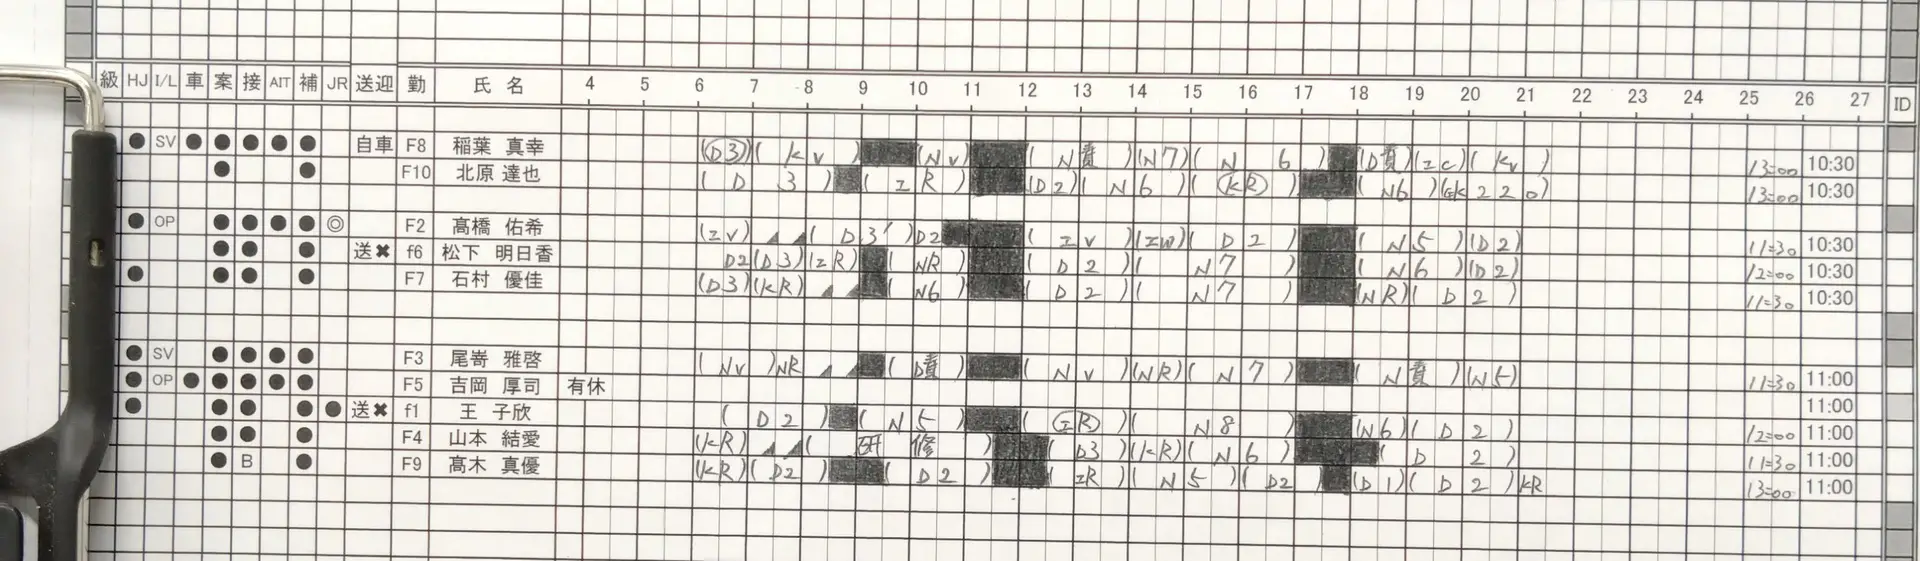 級 HJ I/L 車 案 接 AIT 補 JR 送迎 勤 氏 名 4 5 6 7 8 9 10 11 12 13 14 15 16 17 18 19 20 21 22 23 24 25 26 27 ID
● SV ● ● ● ● ● 自車 F8 稲葉 真幸 (D3)( Kv )(Nv)( N責 )(N7)( N 6 )(D責)(Ic)( Kv ) 13=00 10:30
● ● F10 北原 達也 ( D 3 )( I R )(D2)( N6 )( KR )( N6 )(GK220) 13=00 10:30
● OP ● ● ● ● ◎ F2 髙橋 佑希 (Iv)( D3' )D2( I v )(Iw)( D 2 )( N5 )(D2) 11=30 10:30
● ● ● 送✖ f6 松下 明日香 D2(D3)(IR)( NR )( D 2 )( N7 )( N6 )(D2) 12=00 10:30
● ● ● ● F7 石村 優佳 (D3)(KR)( N6 )( D 2 )( N7 )(NR)( D 2 ) 11=30 10:30
● SV ● ● ● ● F3 尾嵜 雅啓 ( Nv )NR( D責 )( N v )(NR)( N 7 )( N責 )(N5) 11=30 11:00
● OP ● ● ● ● ● F5 吉岡 厚司 有休 11:00
● ● ● ● ● 送✖ f1 王 子欣 ( D2 )( N5 )( IR )( N8 )(N6)( D 2 ) 12=00 11:00
● ● ● F4 山本 結愛 (KR)( 研 修 )( D3 )(KR)( N6 )( D 2 ) 11=30 11:00
● B ● F9 髙木 真優 (KR)( D2 )( D2 )( IR )( N5 )( D2 )(D1)( D 2 )KR 13=00 11:00